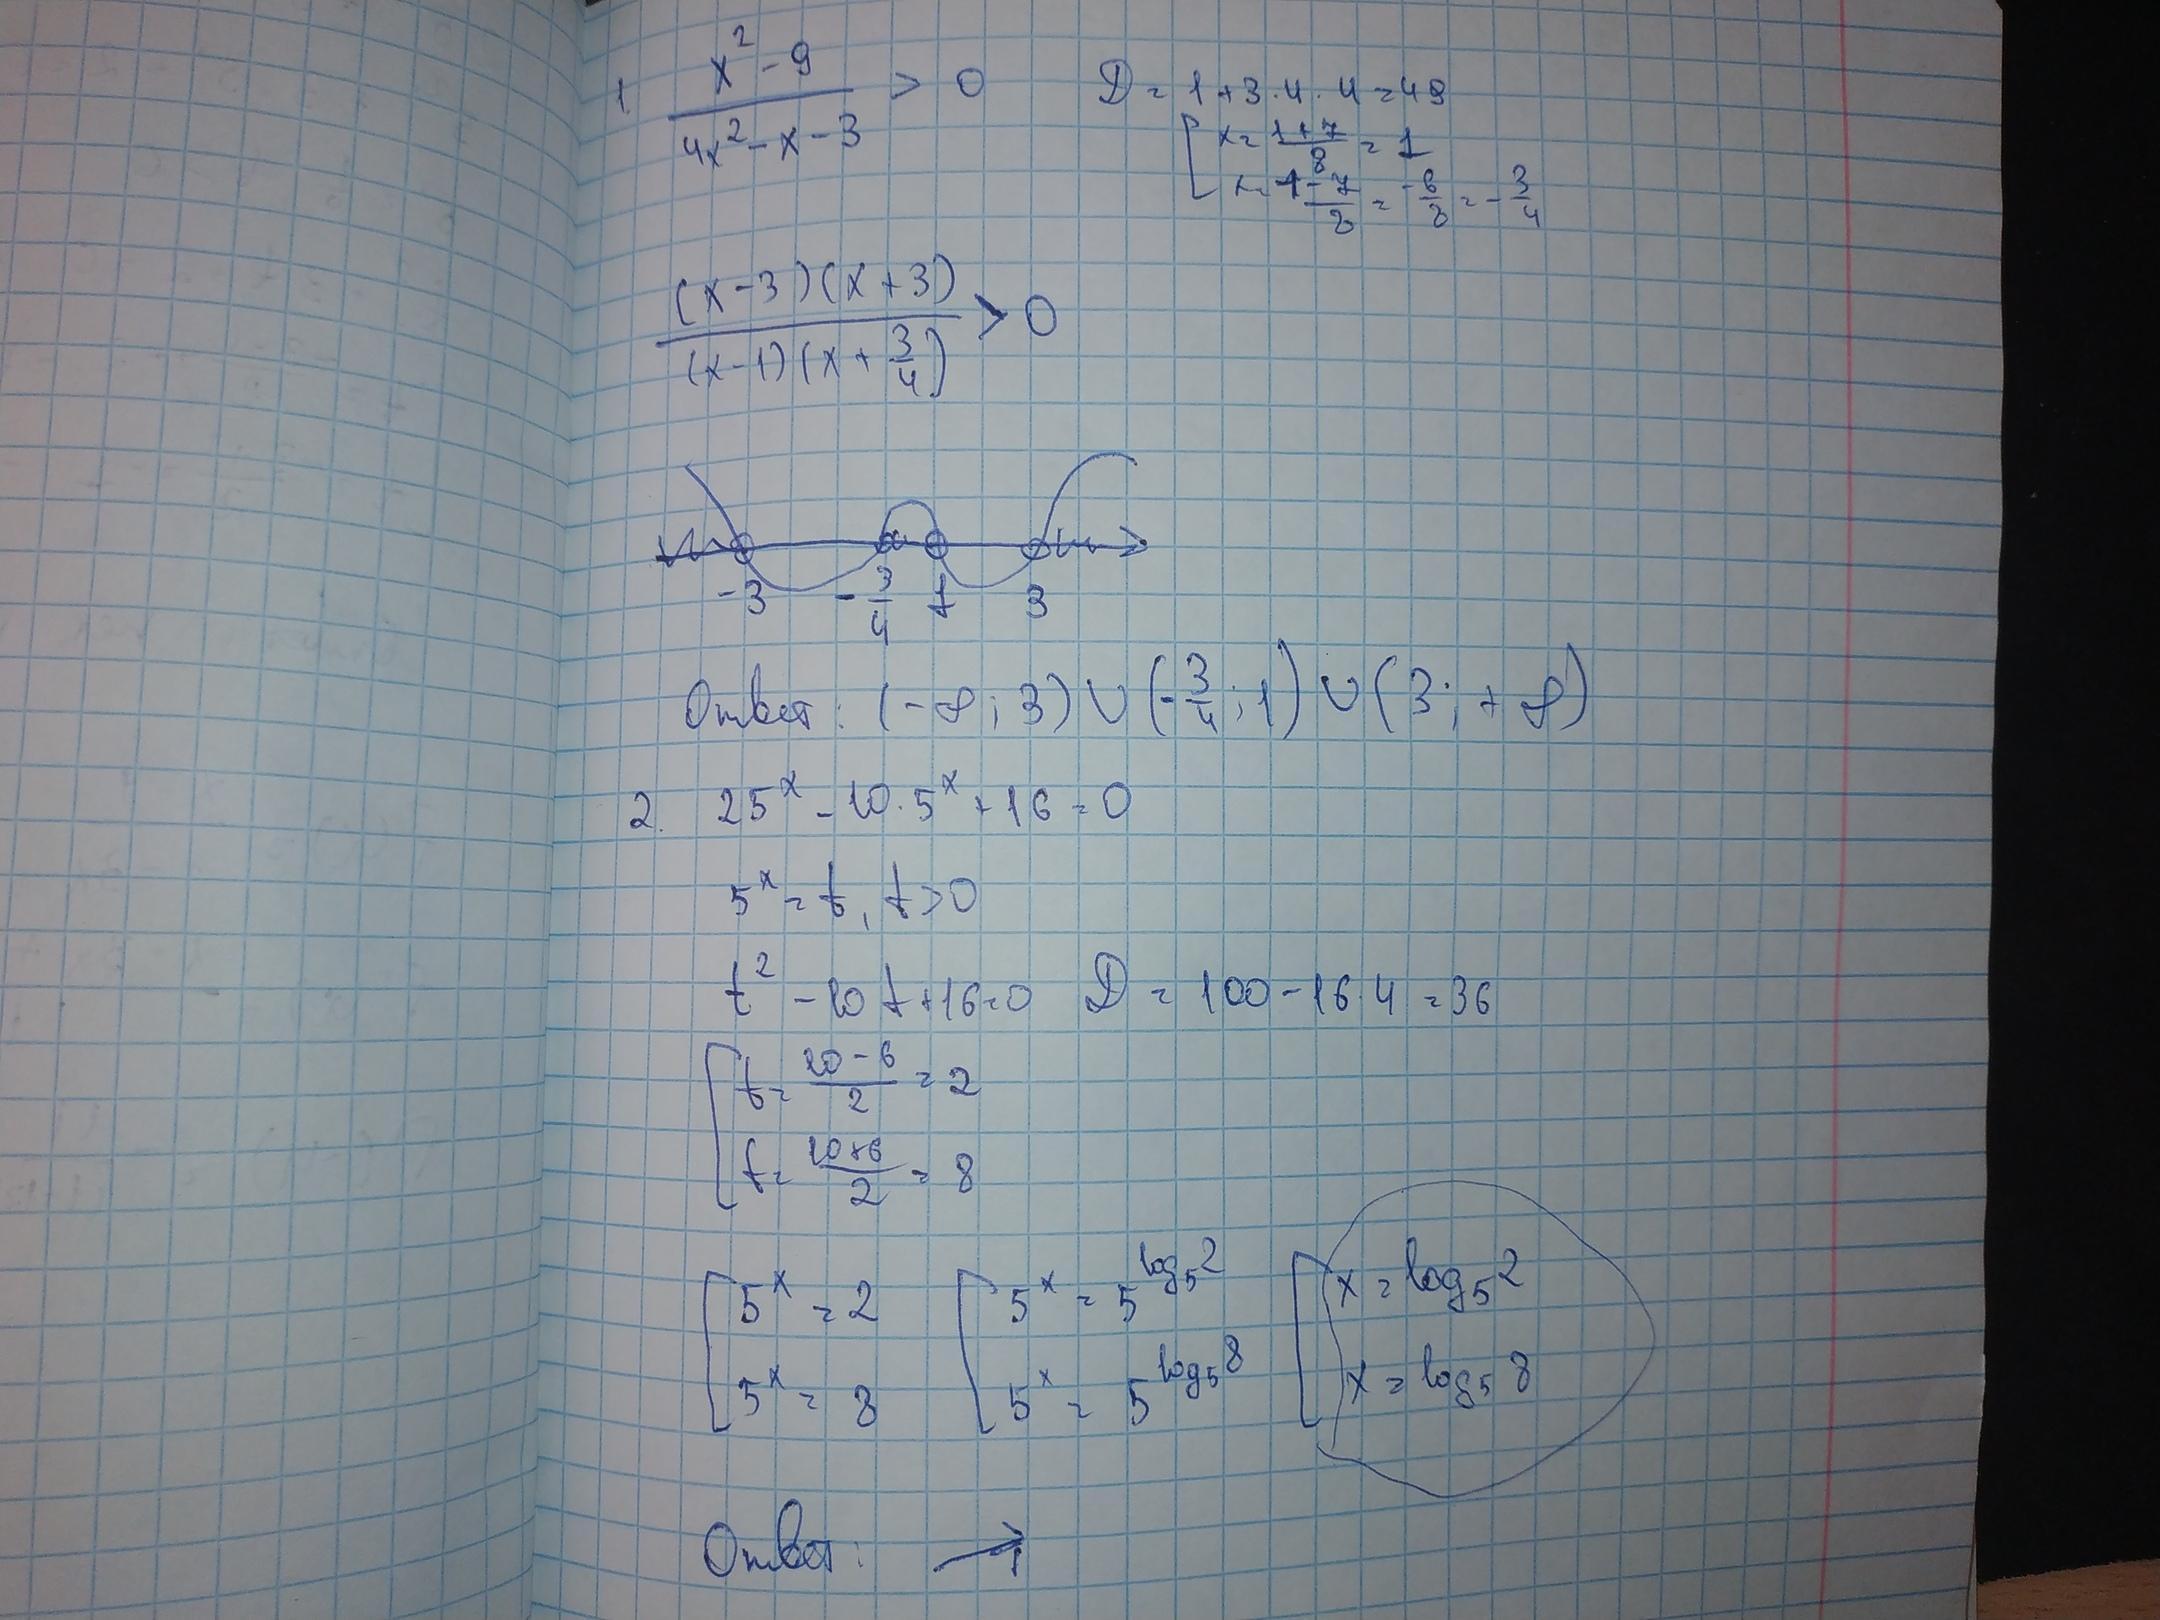 1 (x² - 9)/(4x² - x - 3) > 0
D = 1 + 3·4·4 = 49
[ x = (1+7)/8 = 1
x = (1-7)/8 = -6/8 = -3/4
((x-3)(x+3))/((x-1)(x+3/4)) > 0
-3 -3/4 1 3
Ответ: (-∞; 3) ∪ (-3/4; 1) ∪ (3; +∞)
2. 25^x - 10·5^x + 16 = 0
5^x = t, t > 0
t² - 10t + 16 = 0 D = 100 - 16·4 = 36
[ t = (10-6)/2 = 2
t = (10+6)/2 = 8
[ 5^x = 2 [ 5^x = 5^(log₅2) [ x = log₅2
5^x = 8 5^x = 5^(log₅8) x = log₅8
Ответ: →